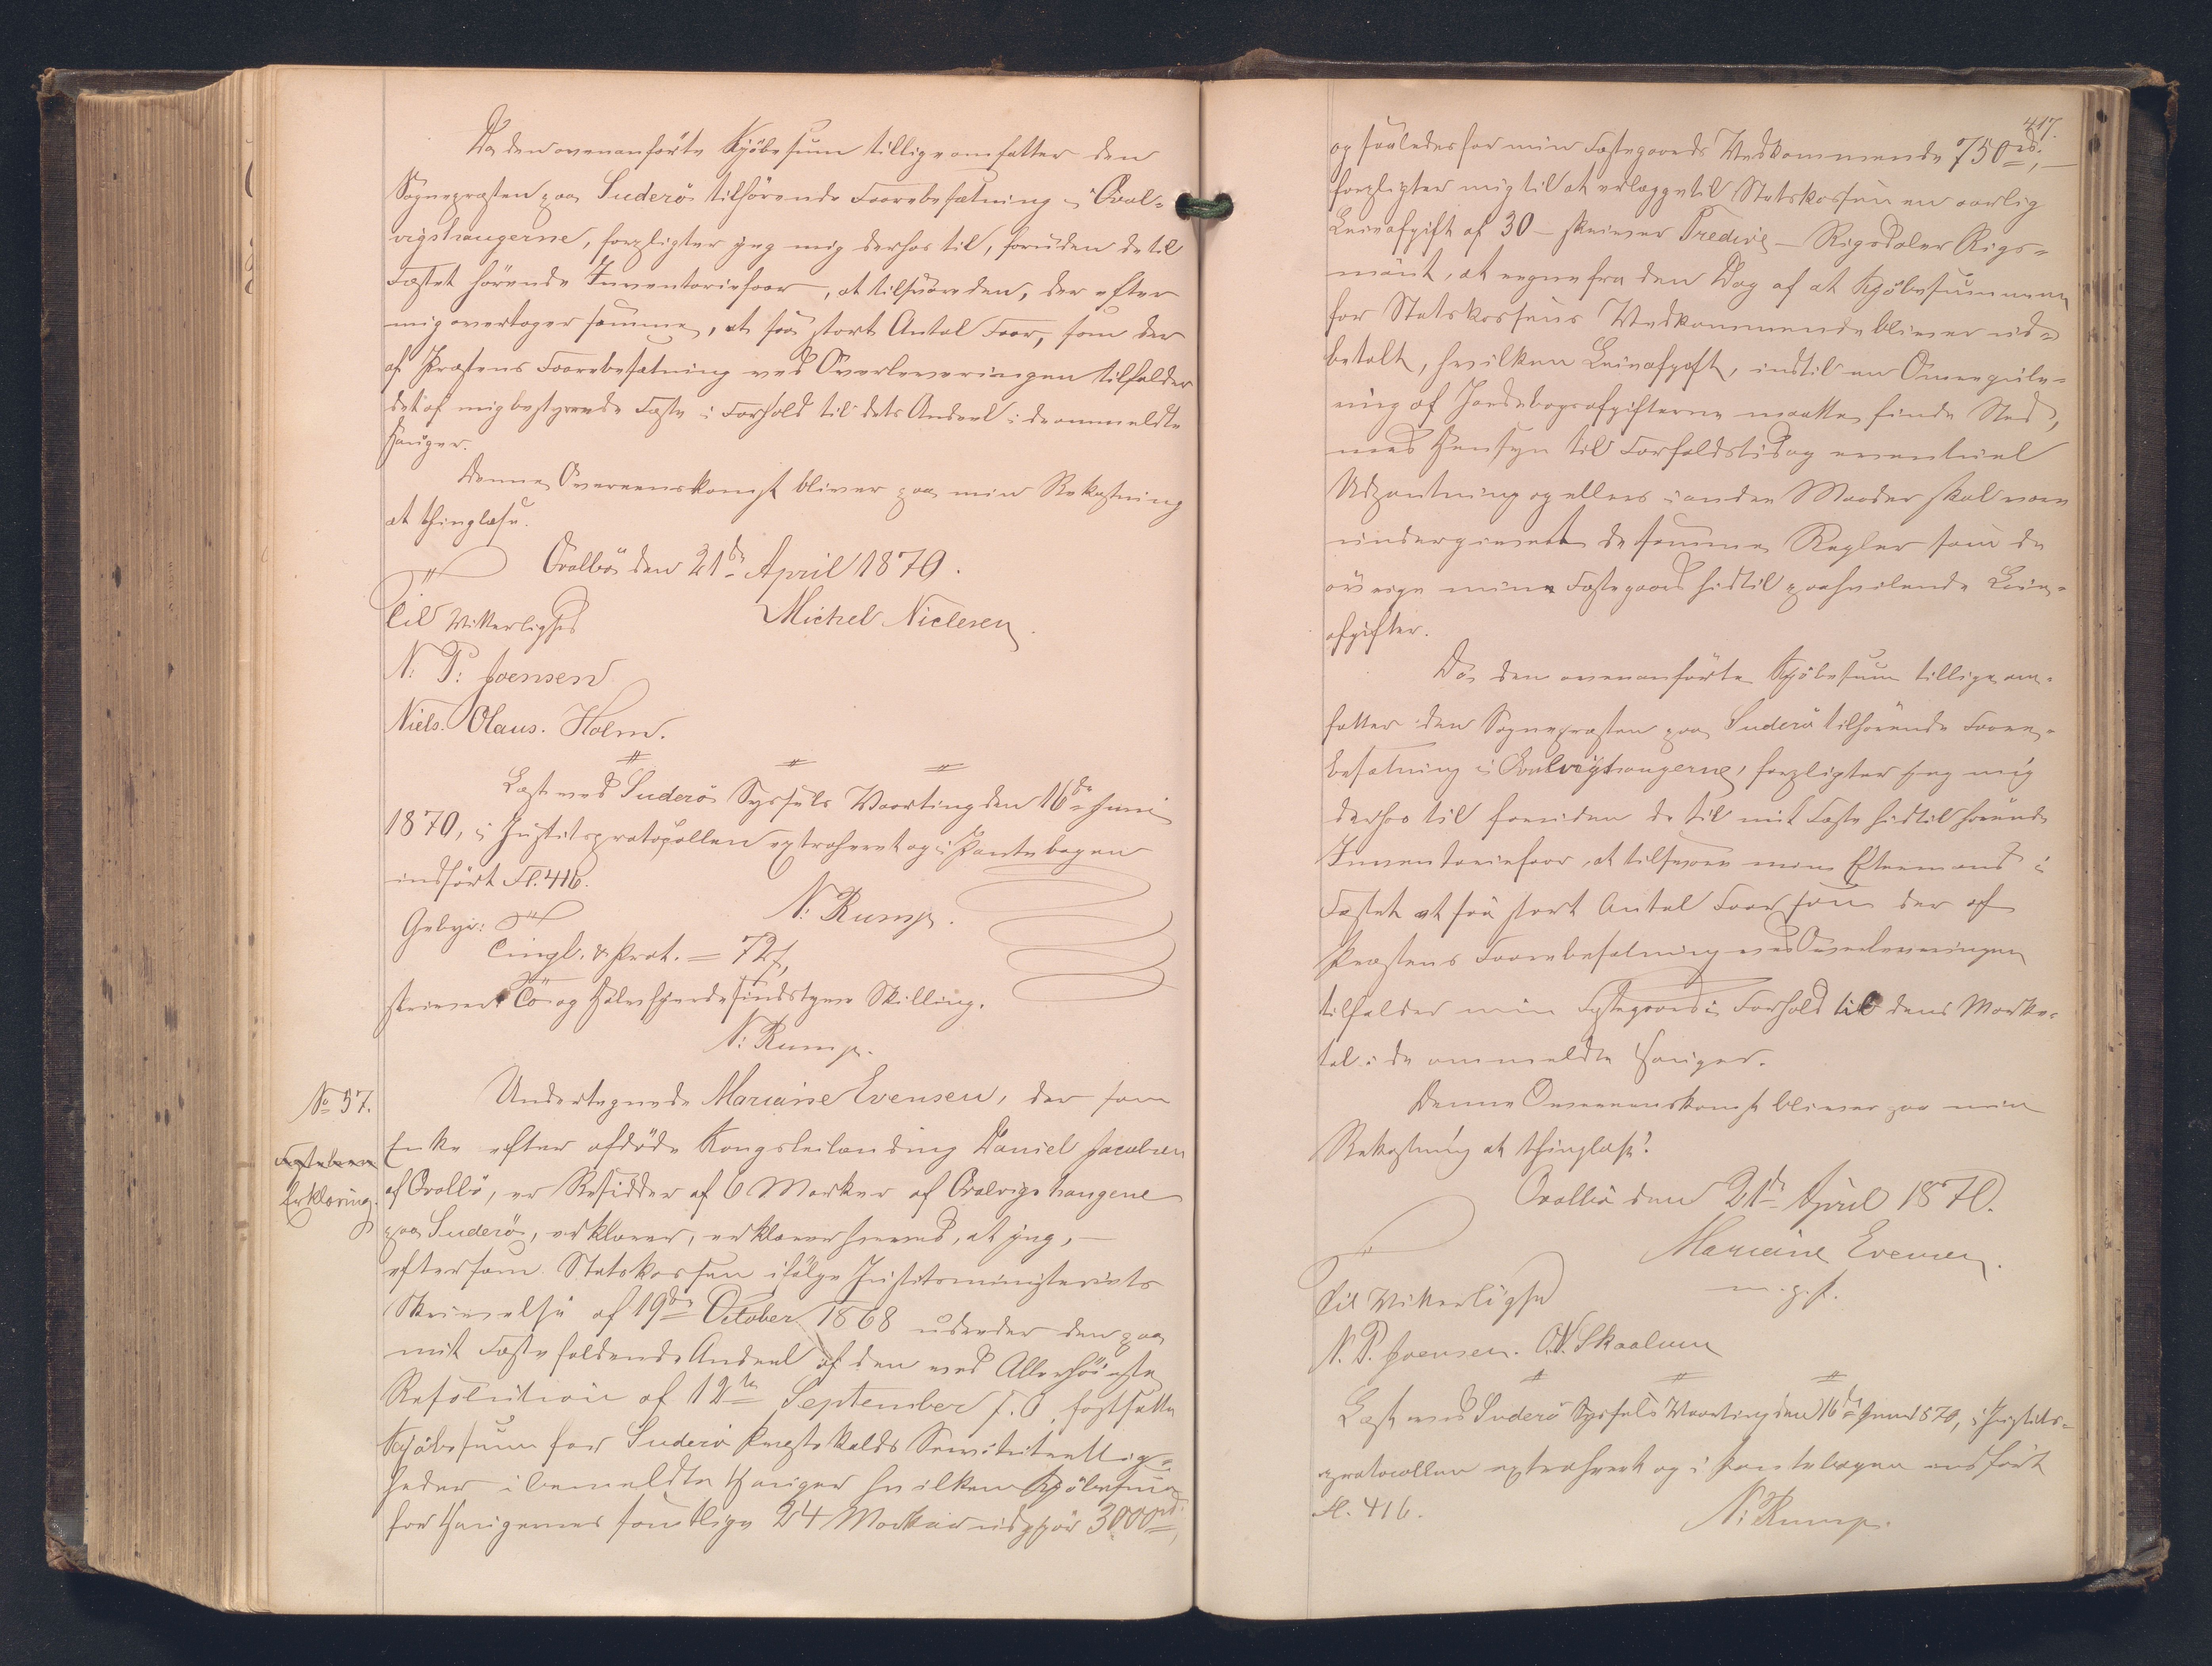 Da den ovenanførte Kjöbesum tillige omfatter den
Sognepræsten paa Suderö tilhörende Faarebesætning i Qval-
vigshaugerne, forpligter jeg mig derhos til, foruden de til
Fæstet hörende Inventariefaar, at tilsvare den, der efter
mig overtager samme, et saa stort Antal Faar, som der
af Præstens Faarebesætning ved Overleveringen tilfalder
det af mig bestyrende Fæste i Forhold til dets Andeel i de ommeldte
Hauger.
Denne Overeenskomst bliver paa min Bekostning
at thinglæse.
Qvalbö den 21de April 1870.
Til Vitterlighed Michel Nielsen.
N: P: Joensen
Niels. Olaus. Holm.
Læst ved Suderö Syssels Vaarting den 16de Juni
1870, i Justitsprotocollen extraheret og i Pantebogen
indfört Fl. 416.
N: Rump.
Gebyr:
Tingl. & Prot. = 72 s,
skriver To og Halvfjerdesindstyve Skilling.
N: Rump.
No 57.
Fæstebrev
Erklæring.
Undertegnede Mariane Evensen, der som
Enke efter afdöde Kongsleilænding Daniel Jacobsen
af Qvalbö, er Besidder af 6 Marker af Qvalvigshaugene
paa Suderö, erklærer, erklærer herved, at jeg, -
eftersom Statskassen ifölge Justitsministeriets
Skrivelse af 19de October 1868 udreder den paa
mit Fæste faldende Andeel af den ved Allerhöieste
Resolution af 12te September s. A. fastsatte
Kjöbesum for Suderö Præstekalds Servitutrettig-
heder i bemeldte Hauger hvilken Kjöbesum
for Haugernes samtlige 24 Marker udgjör 3000 rd.,
417.
og saaledes for min Fæstegaards Vedkommende 750 rd., -
forpligter mig til at erlægge til Statskassen en aarlig
Leieafgift af 30 - skriver Tredive - Rigsdaler Rigs-
mönt, at regne fra den Dag af at Kjöbesummen
for Statskassens Vedkommende bliver ud-
betalt, hvilken Leieafgift, indtil en Omregule-
ring af Jordebogsafgifterne maatte finde Sted,
med Hensyn til Forfaldstid og eventuel
Udpantning og ellers i anden Maader skal være
undergivet de samme Regler som de
övrige mine Fæstegaard hidtil paahvilende Leie-
afgifter.
Da den ovenanförte Kjöbesum tillige om-
fatter den Sognepræsten paa Suderö tilhörende Faare-
besætning i Qvalvigshaugerne, forpligter jeg mig
derhos til foruden de til mit Fæste hidtil hörende
Inventariefaar, at tilsvare min Eftermand i
Fæstet et saa stort Antal Faar som der af
Præstens Faarebesætning ved Overleveringen
tilfalder min Fæstegaard i Forhold til dens Marke-
tal i de ommeldte Hauger.
Denne Overeenskomst bliver paa min
Bekostning at thinglæse.
Qvalbö den 21de April 1870.
Mariane Evensen.
m. p. f.
Til Vitterlighed
N. P. Joensen. O. N. Skaalum
Læst ved Suderö Syssels Vaarting den 16de Juni 1870, i Justits-
protocollen extraheret og i Pantebogen indfört
Fl. 416.
N: Rump.